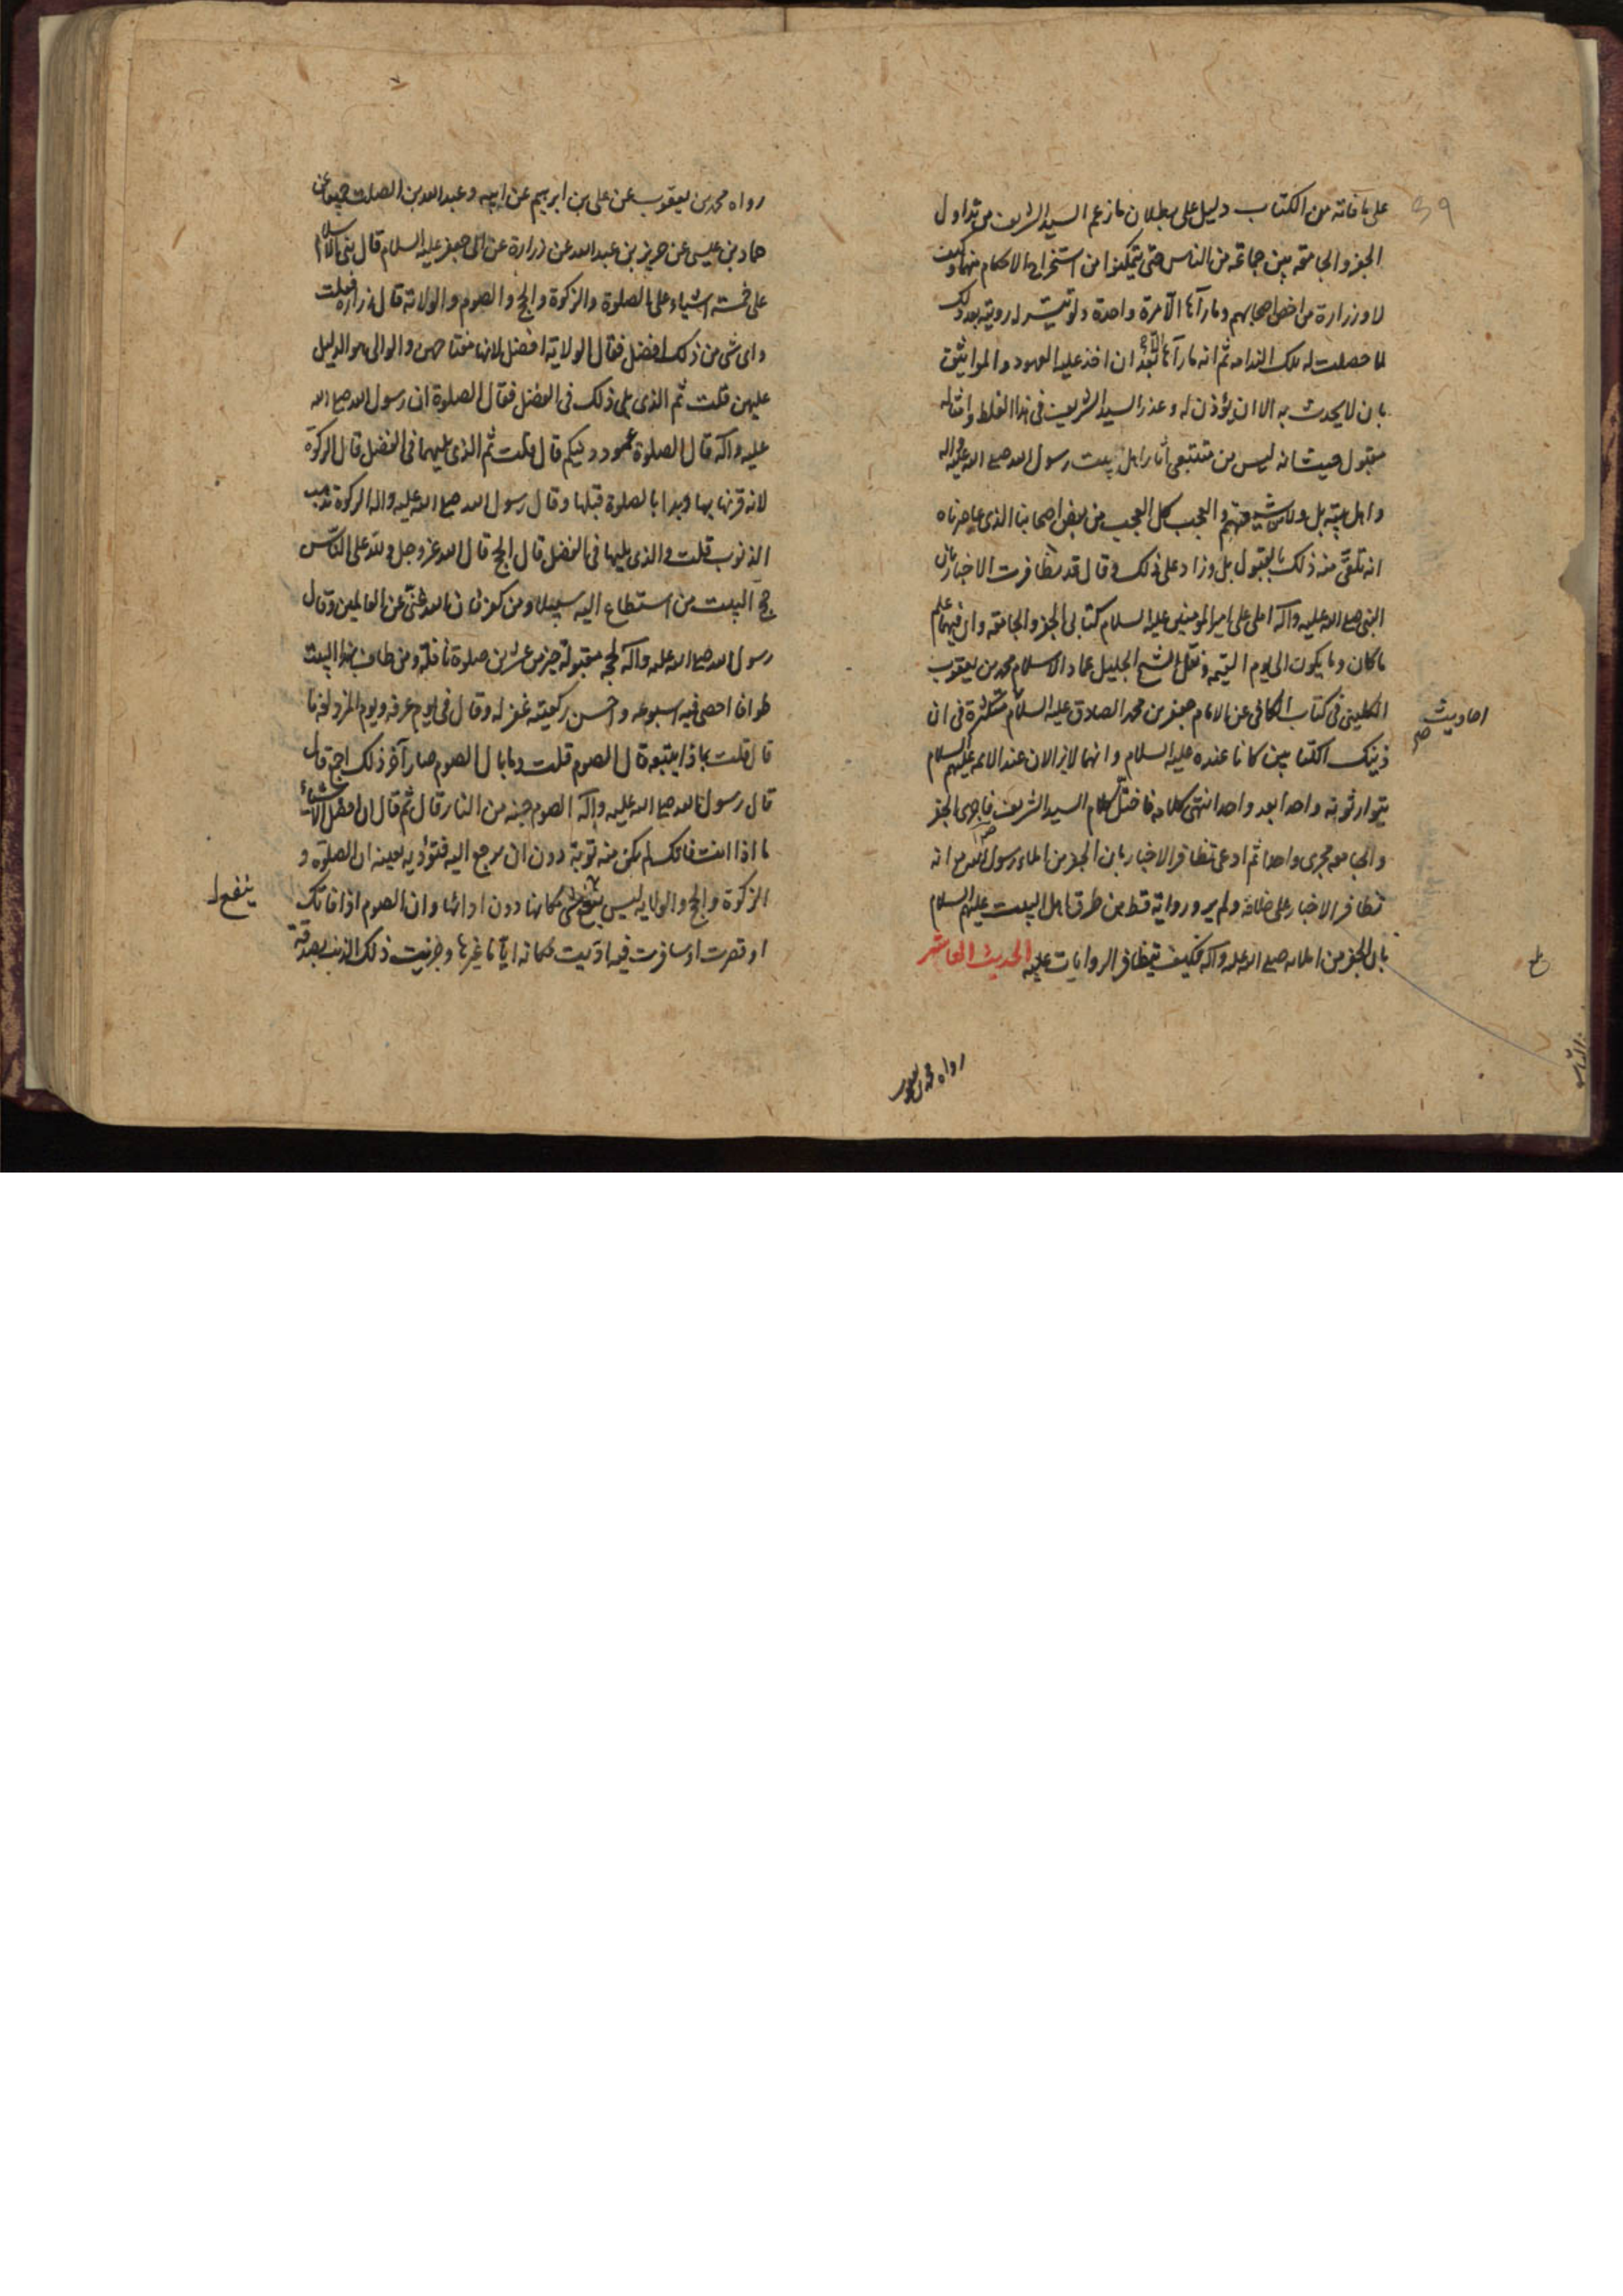 على ما فاته من الكتاب دليل على بطلان ما زعم السيد الشريف من تداول
الجفر والجامعة بين جماعة من الناس حتى يتمكنوا من استخراج الاحكام منهما وكيف
لا وزرارة من اخص اصحابهم وما رآها الا مرة واحدة ولو تيسر له رويته بعد ذلك
لما حصلت له تلك الندامه ثم انه ما رآها الا بعد ان اخذ عليه العهود والمواثيق
بان لا يحدث به الا ان يؤذن له وعذر السيد الشريف في هذا الغلط وامثاله
مقبول حيث انه ليس من متتبعي آثار اهل بيت رسول الله صلى الله عليه وآله
واهل بيته بل ولا من شيعتهم والعجب كل العجب من بعض اصحابنا الذي عاصرناه
انه تلقى منه ذلك بالقبول بل وزاد على ذلك وقال قد تظافرت الاخبار بان
النبي صلى الله عليه وآله املى على امير المؤمنين عليه السلام كتابي الجفر والجامعه وان فيهما علم
ما كان وما يكون الى يوم القيمه ونقل الشيخ الجليل عماد الاسلام محمد بن يعقوب
الكليني في كتاب الكافي عن الامام جعفر بن محمد الصادق عليه السلام متكثرة في ان
احاديث صح
ذينك الكتابين كانا عنده عليه السلام وانهما لا يزالان عند الائمه عليهم السلام
يتوارثونه واحدا بعد واحد انتهى كلامه فاختل كلام السيد الشريف فاجرى الجفر
والجامعه مجرى واحدا ثم ادعى تظافر الاخبار بان الجفر من املاء رسول الله ص مع انه
تظافر الاخبار على خلافه ولم يرو رواية قط من طرق اهل البيت عليهم السلام
بان الجفر من املائه صلى الله عليه وآله فكيف تتظافر الروايات عليه الحديث العاشر
رواه محمد بن يعقوب
رواه محمد بن يعقوب عن على بن ابرهيم عن ابيه وعبد الله بن الصلت جميعا عن
حماد بن عيسى عن حريز بن عبد الله عن زرارة عن ابى جعفر عليه السلام قال بنى الاسلام
على خمسة اشياء على الصلوة والزكوة والحج والصوم والولاية قال زراره فقلت
واى شى من ذلك افضل فقال الولاية افضل لانها مفتاحهن والوالى هو الدليل
عليهن قلت ثم الذى يلى ذلك فى الفضل فقال الصلوة ان رسول الله صلى الله
عليه وآله قال الصلوة عمود دينكم قال قلت ثم الذى يليها فى الفضل قال الزكوة
لانه قرنها بها وبدا بالصلوة قبلها وقال رسول الله صلى الله عليه واله الزكوة تذهب
الذنوب قلت والذى يليها فى الفضل قال الحج قال الله عز وجل ولله على الناس
حج البيت من استطاع اليه سبيلا ومن كفر فان الله غنى عن العالمين وقال
رسول الله صلى الله عليه وآله لحجة مقبولة خير من عشرين صلوة نافلة ومن طاف بهذا البيت
طوافا احصى فيه اسبوعه واحسن ركعتيه غفر له وقال فى يوم عرفه ويوم المزدلفه ما
قال قلت بماذا يتبعه قال الصوم قلت وما بال الصوم صار آخر ذلك اجمع قال
قال رسول الله صلى الله عليه وآله الصوم جنه من النار قال ثم قال ان افضل الاشياء
ما اذا انت فاتك لم يكن منه توبة دون ان ترجع اليه فتؤديه بعينه ان الصلوة و
الزكوة والحج والولايه ليس يقع شى مكانها دون ادائها وان الصوم اذا فاتك
ينفع ل
او قصرت او سافرت فيه اديت مكانه اياما غيرها وجزيت ذلك الذنب بصدقة